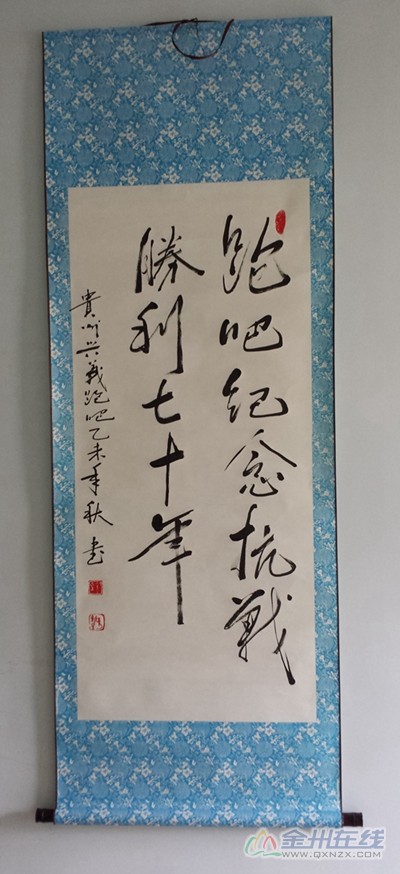 跑吧纪念抗戰
勝利七十年
貴州兴義跑吧乙未年秋書
金州在线
WWW.QXNZX.COM